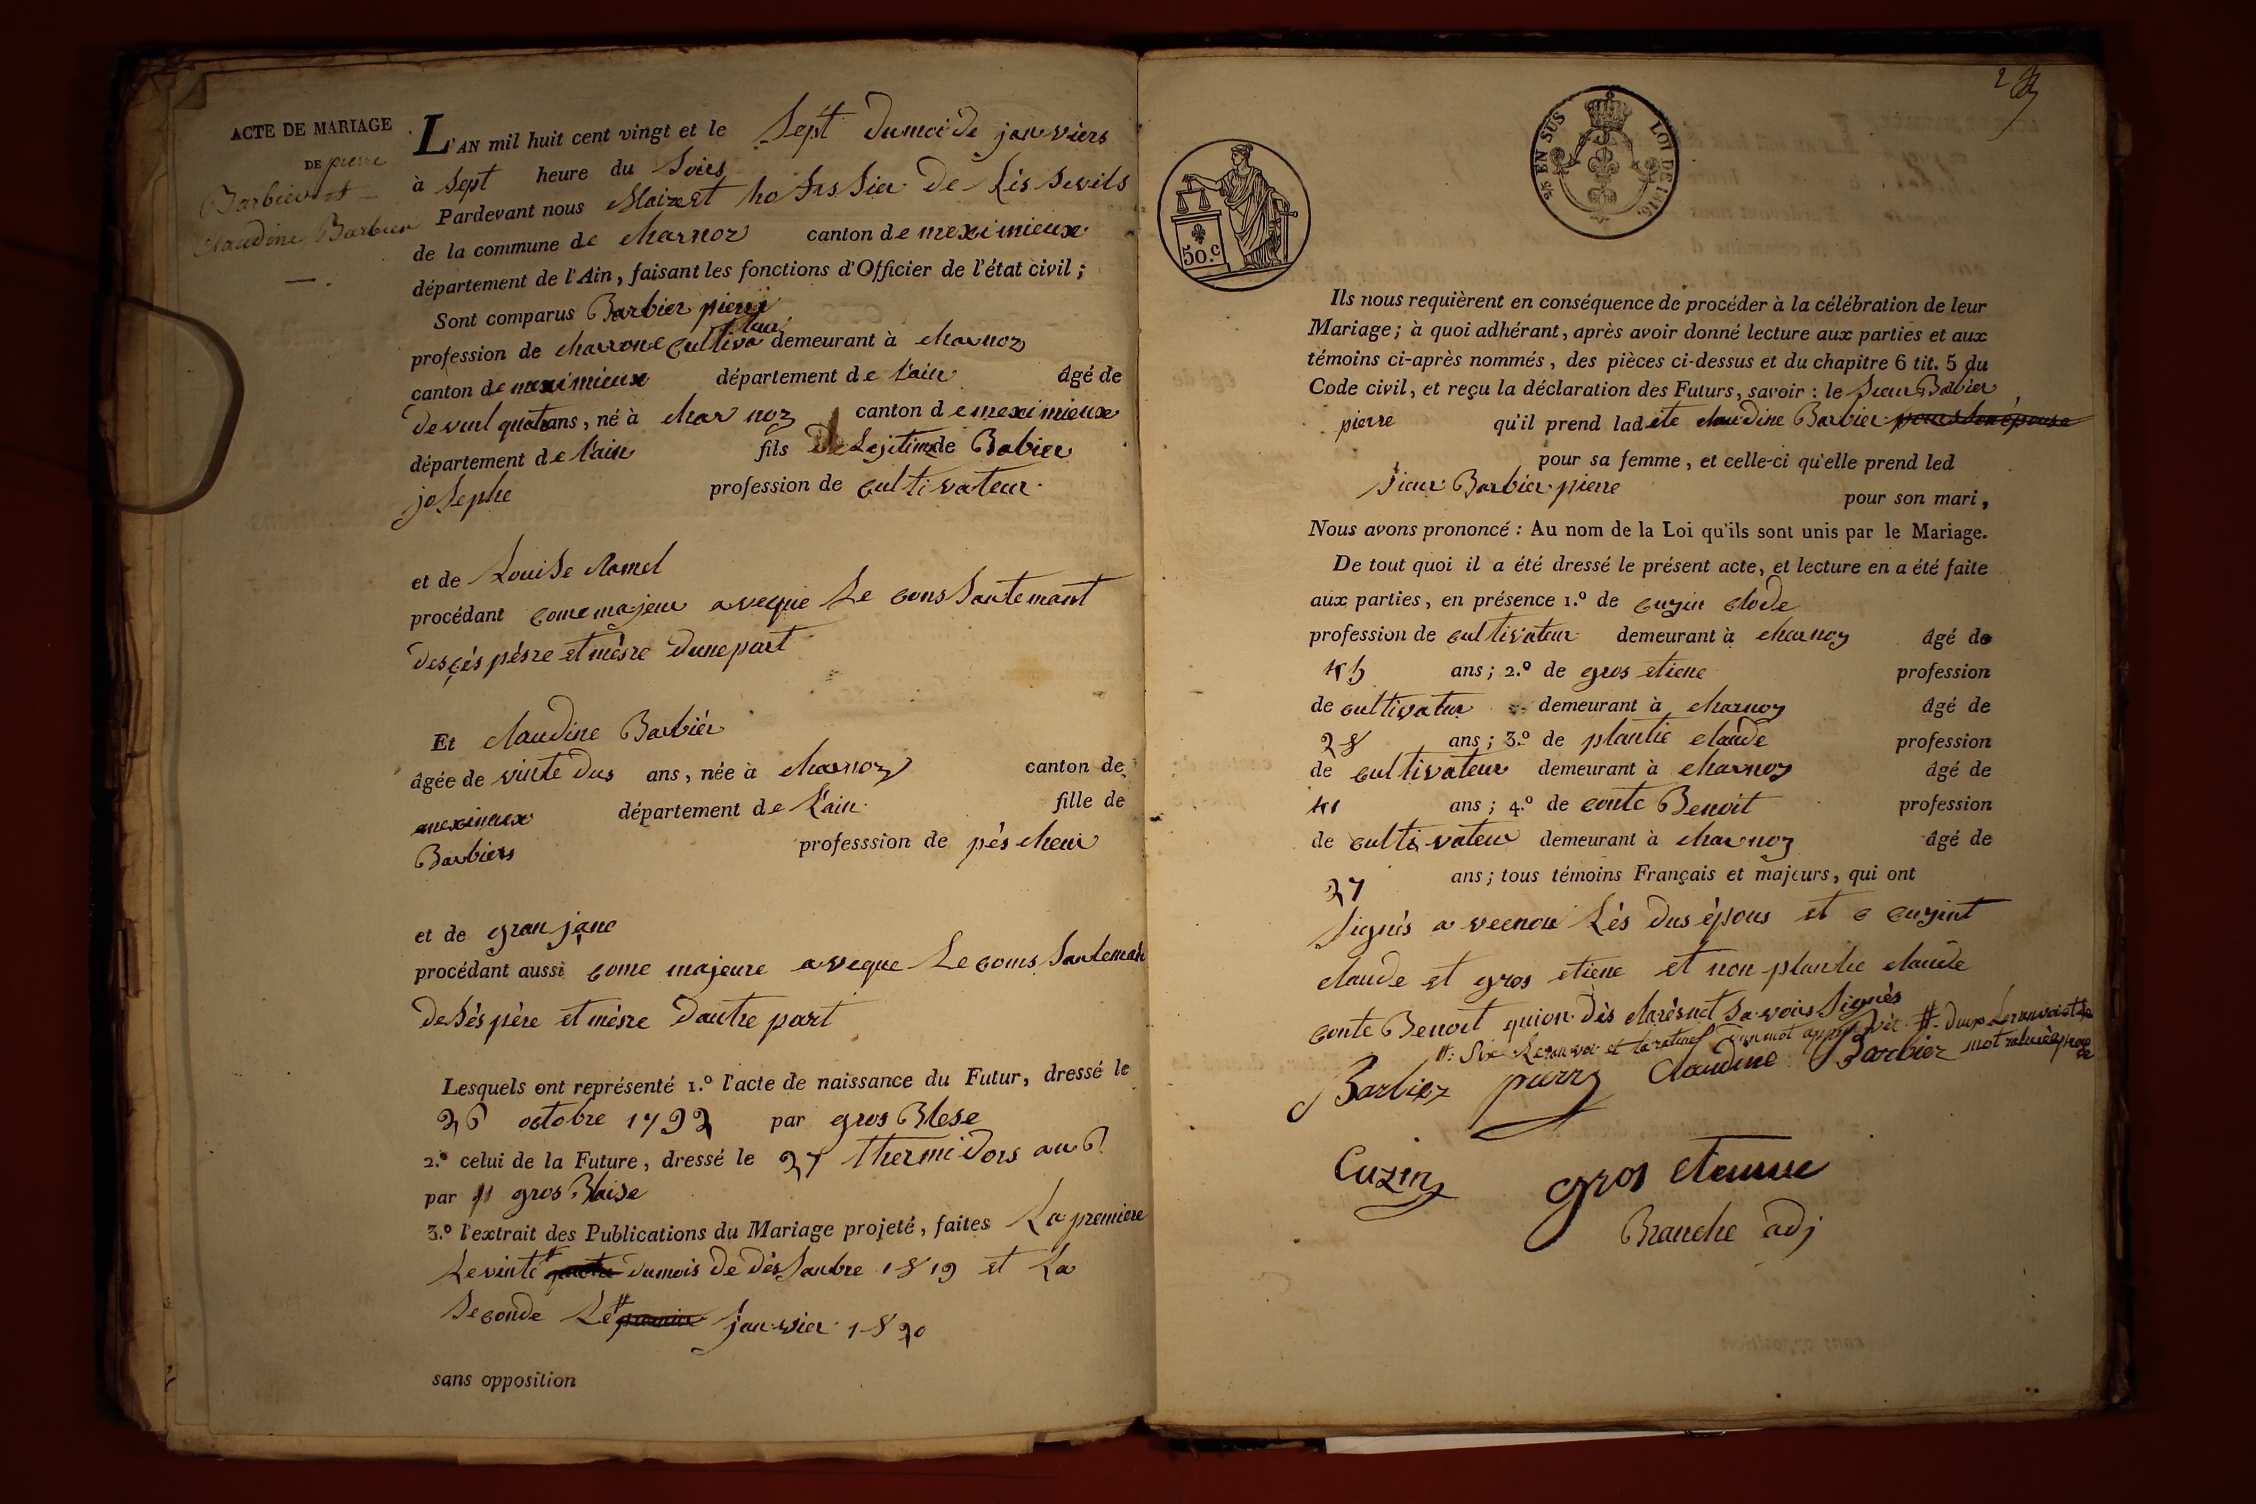 ACTE DE MARIAGE
DE pierre
Barbier et
claudine Barbier
L'AN mil huit cent vingt et le Sept Dumoi de janviers
à Sept heure du Soirs
Pardevant nous Maire et hofissier De Lés Sevils
de la commune de charnoz canton de meximieux
département de l'Ain, faisant les fonctions d'Officier de l'état civil ;
Sont comparus Barbier pierre
profession de charrone cultivateur demeurant à charnoz
canton de meximieux département de l'ain âgé de
de vint quatre ans, né à charnoz canton de meximieux
département de l'ain fils Legitime de Babier
joSephe profession de cultivateur
et de LouiSe Ramel
procédant come majeur aveque Le consSantemant
des çés pésre et mésre Dune part
Et claudine Barbiér
âgée de vinte Dus ans, née à charnoz canton de
meximieux département de L'ain fille de
Barbiers professsion de péscheur
et de gran jane
procédant aussi come majeure aveque Le consSanteman
de Sés pére et mésre Dautre part
Lesquels ont représenté 1.º l'acte de naissance du Futur, dressé le
26 octobre 1792 par gros Blese
2.º celui de la Future, dressé le 27 thermidors an 6
par gros Blaise
3.º l'extrait des Publications du Mariage projeté, faites La premiere
Le vinte Dumois De désSanbre 1819 et La
Seconde Le premier janvier 1820
sans opposition
2
25 EN SUS LOI DE 1816.
50.c
Ils nous requièrent en conséquence de procéder à la célébration de leur
Mariage ; à quoi adhérant, après avoir donné lecture aux parties et aux
témoins ci-après nommés, des pièces ci-dessus et du chapitre 6 tit. 5 du
Code civil, et reçu la déclaration des Futurs, savoir : le Sieur Babier
pierre qu'il prend ladite claudine Barbier pour Son épouse
pour sa femme, et celle-ci qu'elle prend led
Sieur Barbier pierre pour son mari,
Nous avons prononcé : Au nom de la Loi qu'ils sont unis par le Mariage.
De tout quoi il a été dressé le présent acte, et lecture en a été faite
aux parties, en présence 1.º de cuzin clode
profession de cultivateur demeurant à charnoz âgé de
45 ans ; 2.º de gros etiene profession
de cultivatur demeurant à charnoz âgé de
28 ans ; 3.º de plantie claude profession
de cultivateur demeurant à charnoz âgé de
41 ans ; 4.º de conte Benoit profession
de cultivateur demeurant à charnoz âgé de
27 ans ; tous témoins Français et majeurs, qui ont
Signés avecnou Lés Dus époux et cuzint
claude et gros etiene et non plantie claude
conte Benoit quion déclarésnet Savoir Signés
Barbier pierre Claudine Barbier
Cuzin gros etienne
Branche adj